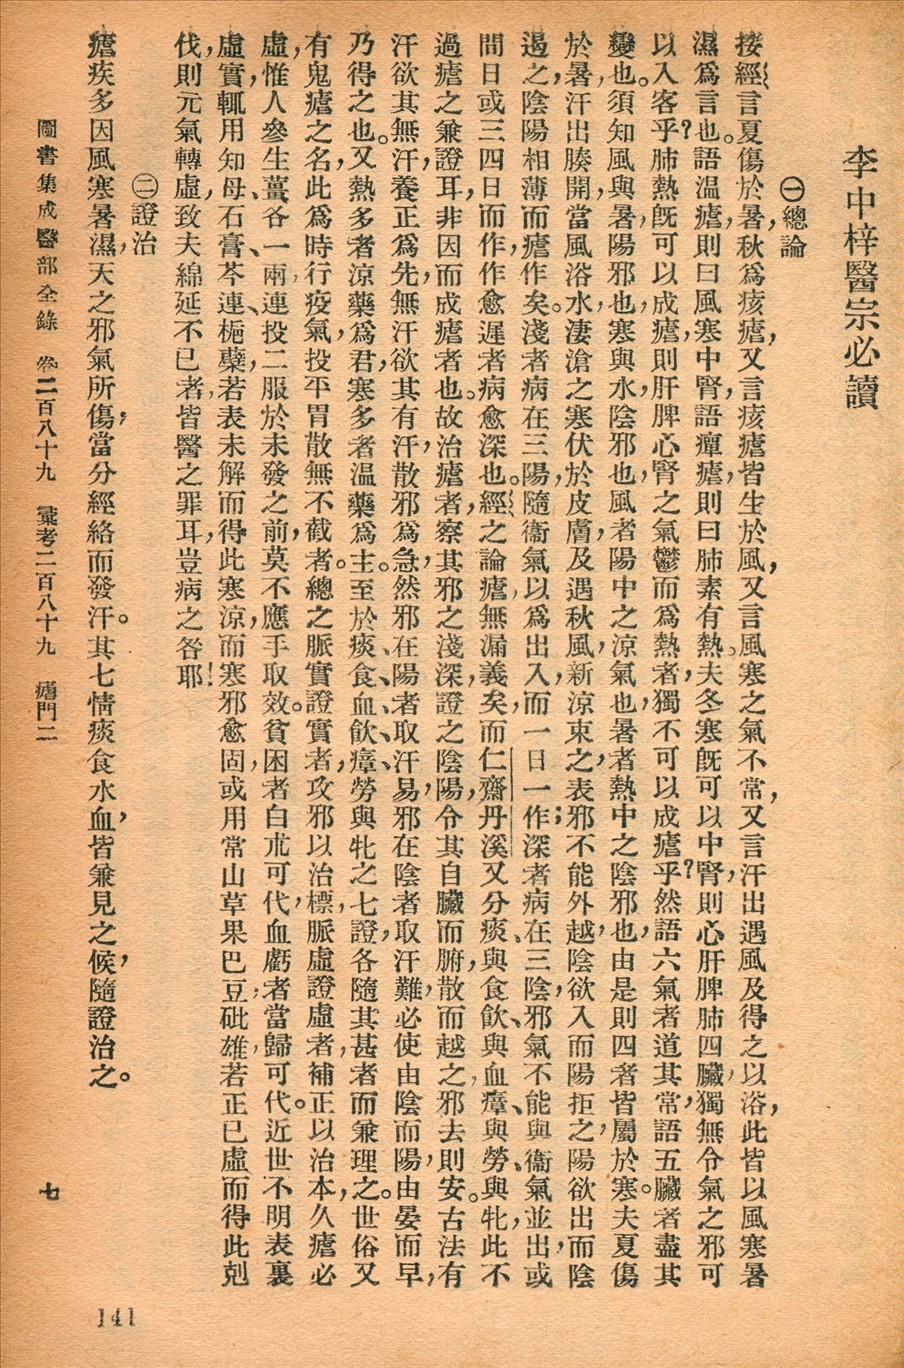 李中梓醫宗必讀
㊀總論
按經言夏傷於暑，秋爲痎瘧，又言痎瘧皆生於風，又言風寒之氣不常，又言汗出遇風及得之以浴，此皆以風寒暑
濕爲言也。語温瘧，則曰風寒中腎，語癉瘧，則曰肺素有熱。夫冬寒旣可以中腎，則心肝脾肺四臟，獨無令氣之邪可
以入客乎？肺熱旣可以成瘧，則肝脾心腎之氣鬱而爲熱者，獨不可以成瘧乎？然語六氣者道其常，語五臟者盡其
變也。須知風與暑，陽邪也，寒與水，陰邪也，風者陽中之涼氣也，暑者熱中之陰邪也，由是則四者皆屬於寒。夫夏傷
於暑，汗出腠開，當風浴水，淒滄之寒，伏於皮膚，及遇秋風，新涼束之，表邪不能外越，陰欲入而陽拒之，陽欲出而陰
遏之，陰陽相薄而瘧作矣。淺者病在三陽，隨衞氣以爲出入，而一日一作；深者病在三陰，邪氣不能與衞氣並出，或
間日或三四日而作，作愈遲者，病愈深也。經之論瘧，無漏義矣，而仁齋丹溪又分痰、與食飲、與血瘴、與勞、與牝，此不
過瘧之兼證耳，非因而成瘧者也。故治瘧者，察其邪之淺深，證之陰陽，令其自臟而腑，散而越之，邪去則安。古法有
汗欲其無汗，養正爲先，無汗欲其有汗，散邪爲急，然邪在陽者取汗易，邪在陰者取汗難，必使由陰而陽，由晏而早，
乃得之也。又熱多者涼藥爲君，寒多者温藥爲主。至於痰、食、血、飲、瘴、勞與牝之七證，各隨其甚者而兼理之。世俗又
有鬼瘧之名，此爲時行疫氣，投平胃散無不截者。總之脈實證實者，攻邪以治標，脈虛證虛者，補正以治本，久瘧必
虛，惟人參生薑各一兩，連投二服於未發之前，莫不應手取效。貧困者白朮可代，血虧者當歸可代。近世不明表裏
虛實，輒用知母、石膏、芩、連、梔、蘗，若表未解而得此寒涼，而寒邪愈固，或用常山草果巴豆砒雄，若正已虛而得此剋
伐，則元氣轉虛，致夫綿延不已者，皆醫之罪耳，豈病之咎耶！
㊁證治
瘧疾多因風寒暑濕，天之邪氣所傷，當分經絡而發汗。其七情痰食水血，皆兼見之候，隨證治之。
圖書集成醫部全錄 卷二百八十九 彙考二百八十九 瘧門二
七
141